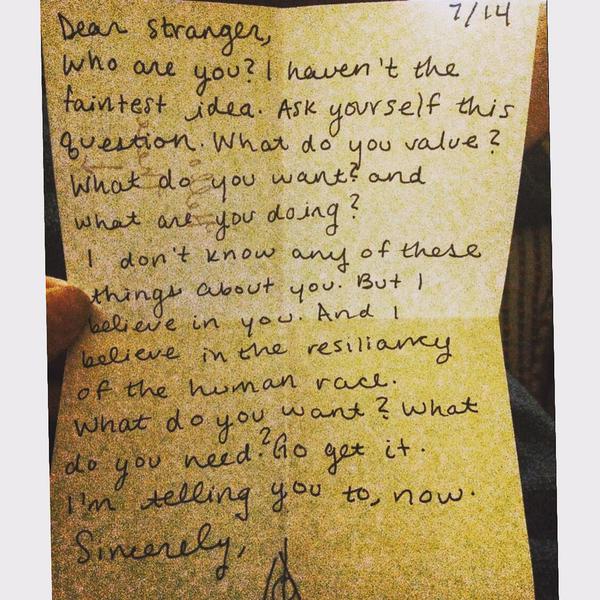 7/14
Dear stranger,
Who are you? I haven't the
faintest idea. Ask yourself this
question. What do you value?
What do you want? and
what are you doing?
I don't know any of these
things about you. But I
believe in you. And I
believe in the resiliancy
of the human race.
What do you want? What
do you need? Go get it.
I'm telling you to, now.
Sincerely,